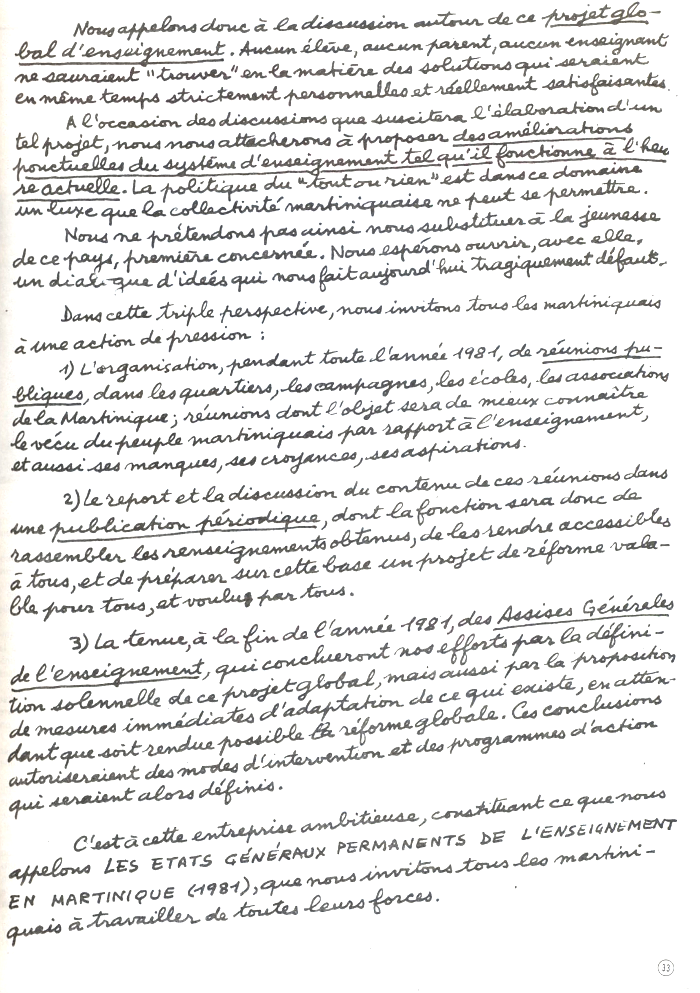 Nous appelons donc à la discussion autour de ce projet glo-
bal d'enseignement. Aucun élève, aucun parent, aucun enseignant
ne sauraient "trouver" en la matière des solutions qui seraient
en même temps strictement personnelles et réellement satisfaisantes.
A l'occasion des discussions que suscitera l'élaboration d'un
tel projet, nous nous attacherons à proposer des améliorations
ponctuelles du système d'enseignement tel qu'il fonctionne à l'heu
re actuelle. La politique du "tout ou rien" est dans ce domaine
un luxe que la collectivité martiniquaise ne peut se permettre.
Nous ne prétendons pas ainsi nous substituer à la jeunesse
de ce pays, première concernée. Nous espérons ouvrir, avec elle,
un dialogue d'idées qui nous fait aujourd'hui tragiquement défaut.
Dans cette triple perspective, nous invitons tous les martiniquais
à une action de pression :
1) L'organisation, pendant toute l'année 1981, de réunions pu-
bliques, dans les quartiers, les campagnes, les écoles, les associations
de la Martinique; réunions dont l'objet sera de mieux connaître
le vécu du peuple martiniquais par rapport à l'enseignement,
et aussi ses manques, ses croyances, ses aspirations.
2) Le report et la discussion du contenu de ces réunions dans
une publication périodique, dont la fonction sera donc de
rassembler les renseignements obtenus, de les rendre accessibles
à tous, et de préparer sur cette base un projet de réforme vala-
ble pour tous, et voulu par tous.
3) La tenue, à la fin de l'année 1981, des Assises Générales
de l'enseignement, qui conclueront nos efforts par la défini-
tion solennelle de ce projet global, mais aussi par la proposition
de mesures immédiates d'adaptation de ce qui existe, en atten-
dant que soit rendue possible la réforme globale. Ces conclusions
autoriseraient des modes d'intervention et des programmes d'action
qui seraient alors définis.
C'est à cette entreprise ambitieuse, constituant ce que nous
appelons LES ETATS GÉNÉRAUX PERMANENTS DE L'ENSEIGNEMENT
EN MARTINIQUE (1981), que nous invitons tous les martini-
quais à travailler de toutes leurs forces.
33